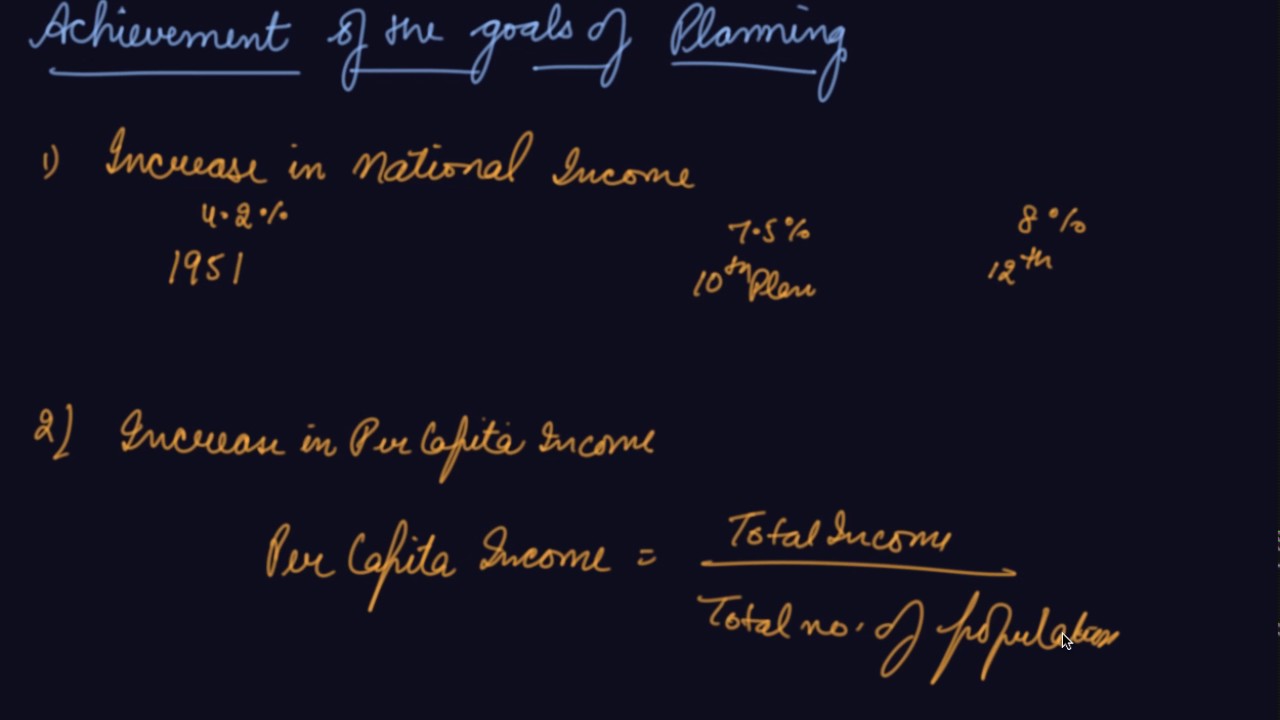 Achievement of the goals of Planning
1) Increase in National Income
4.2% 7.5% 8%
1951 10th Plan 12th
2) Increase in Per Capita Income
Per Capita Income = Total Income
Total no. of population